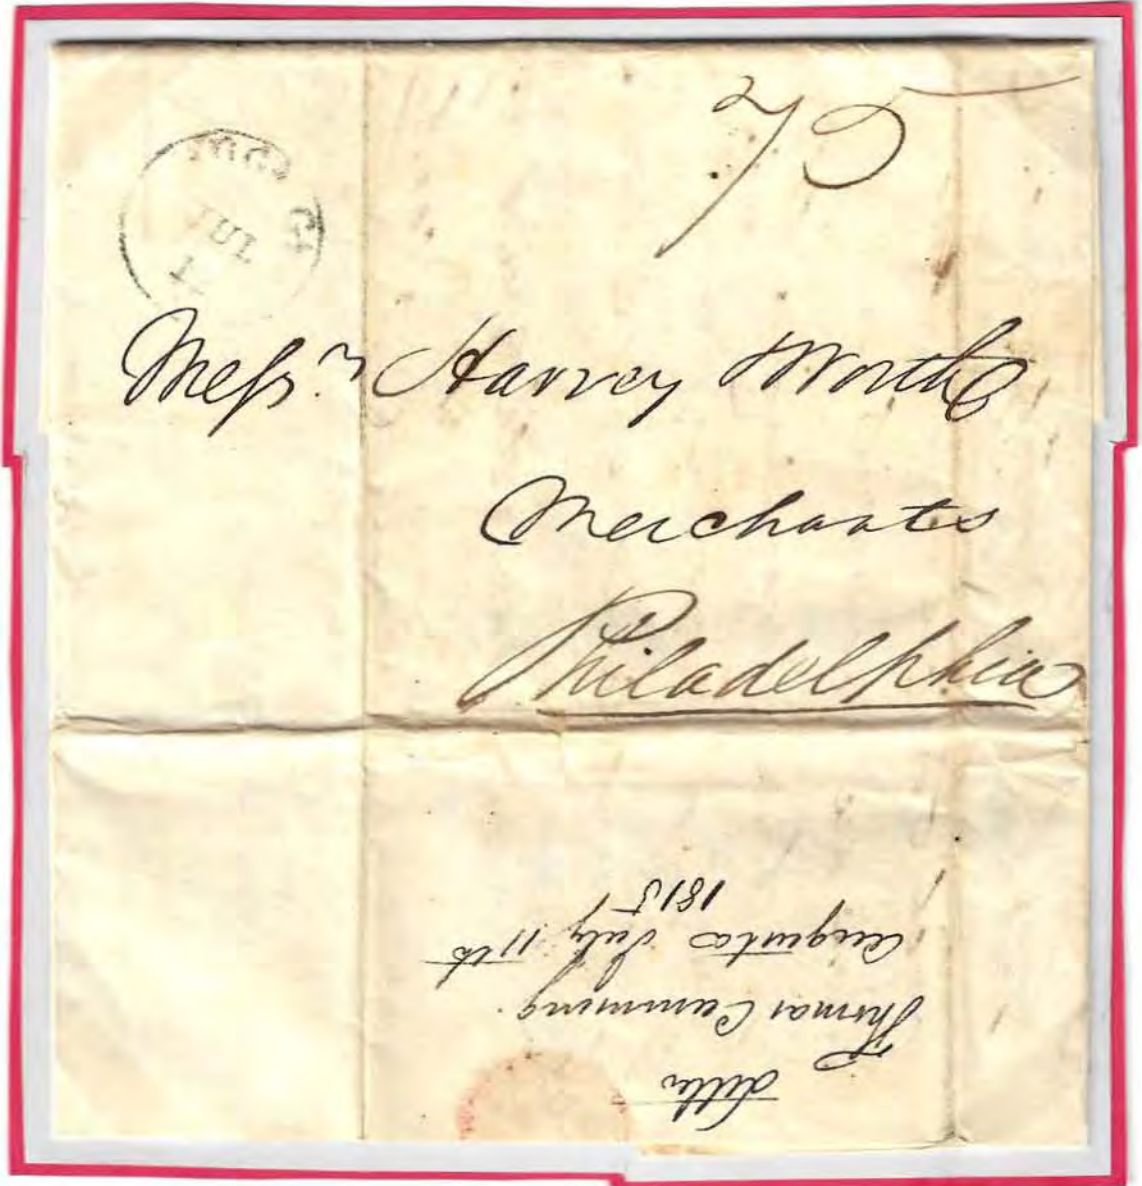 75
JUL
Messrs Harvey Worth
Merchants
Philadelphia
Letter
Thomas Cumming
Augusta July 11th
1815